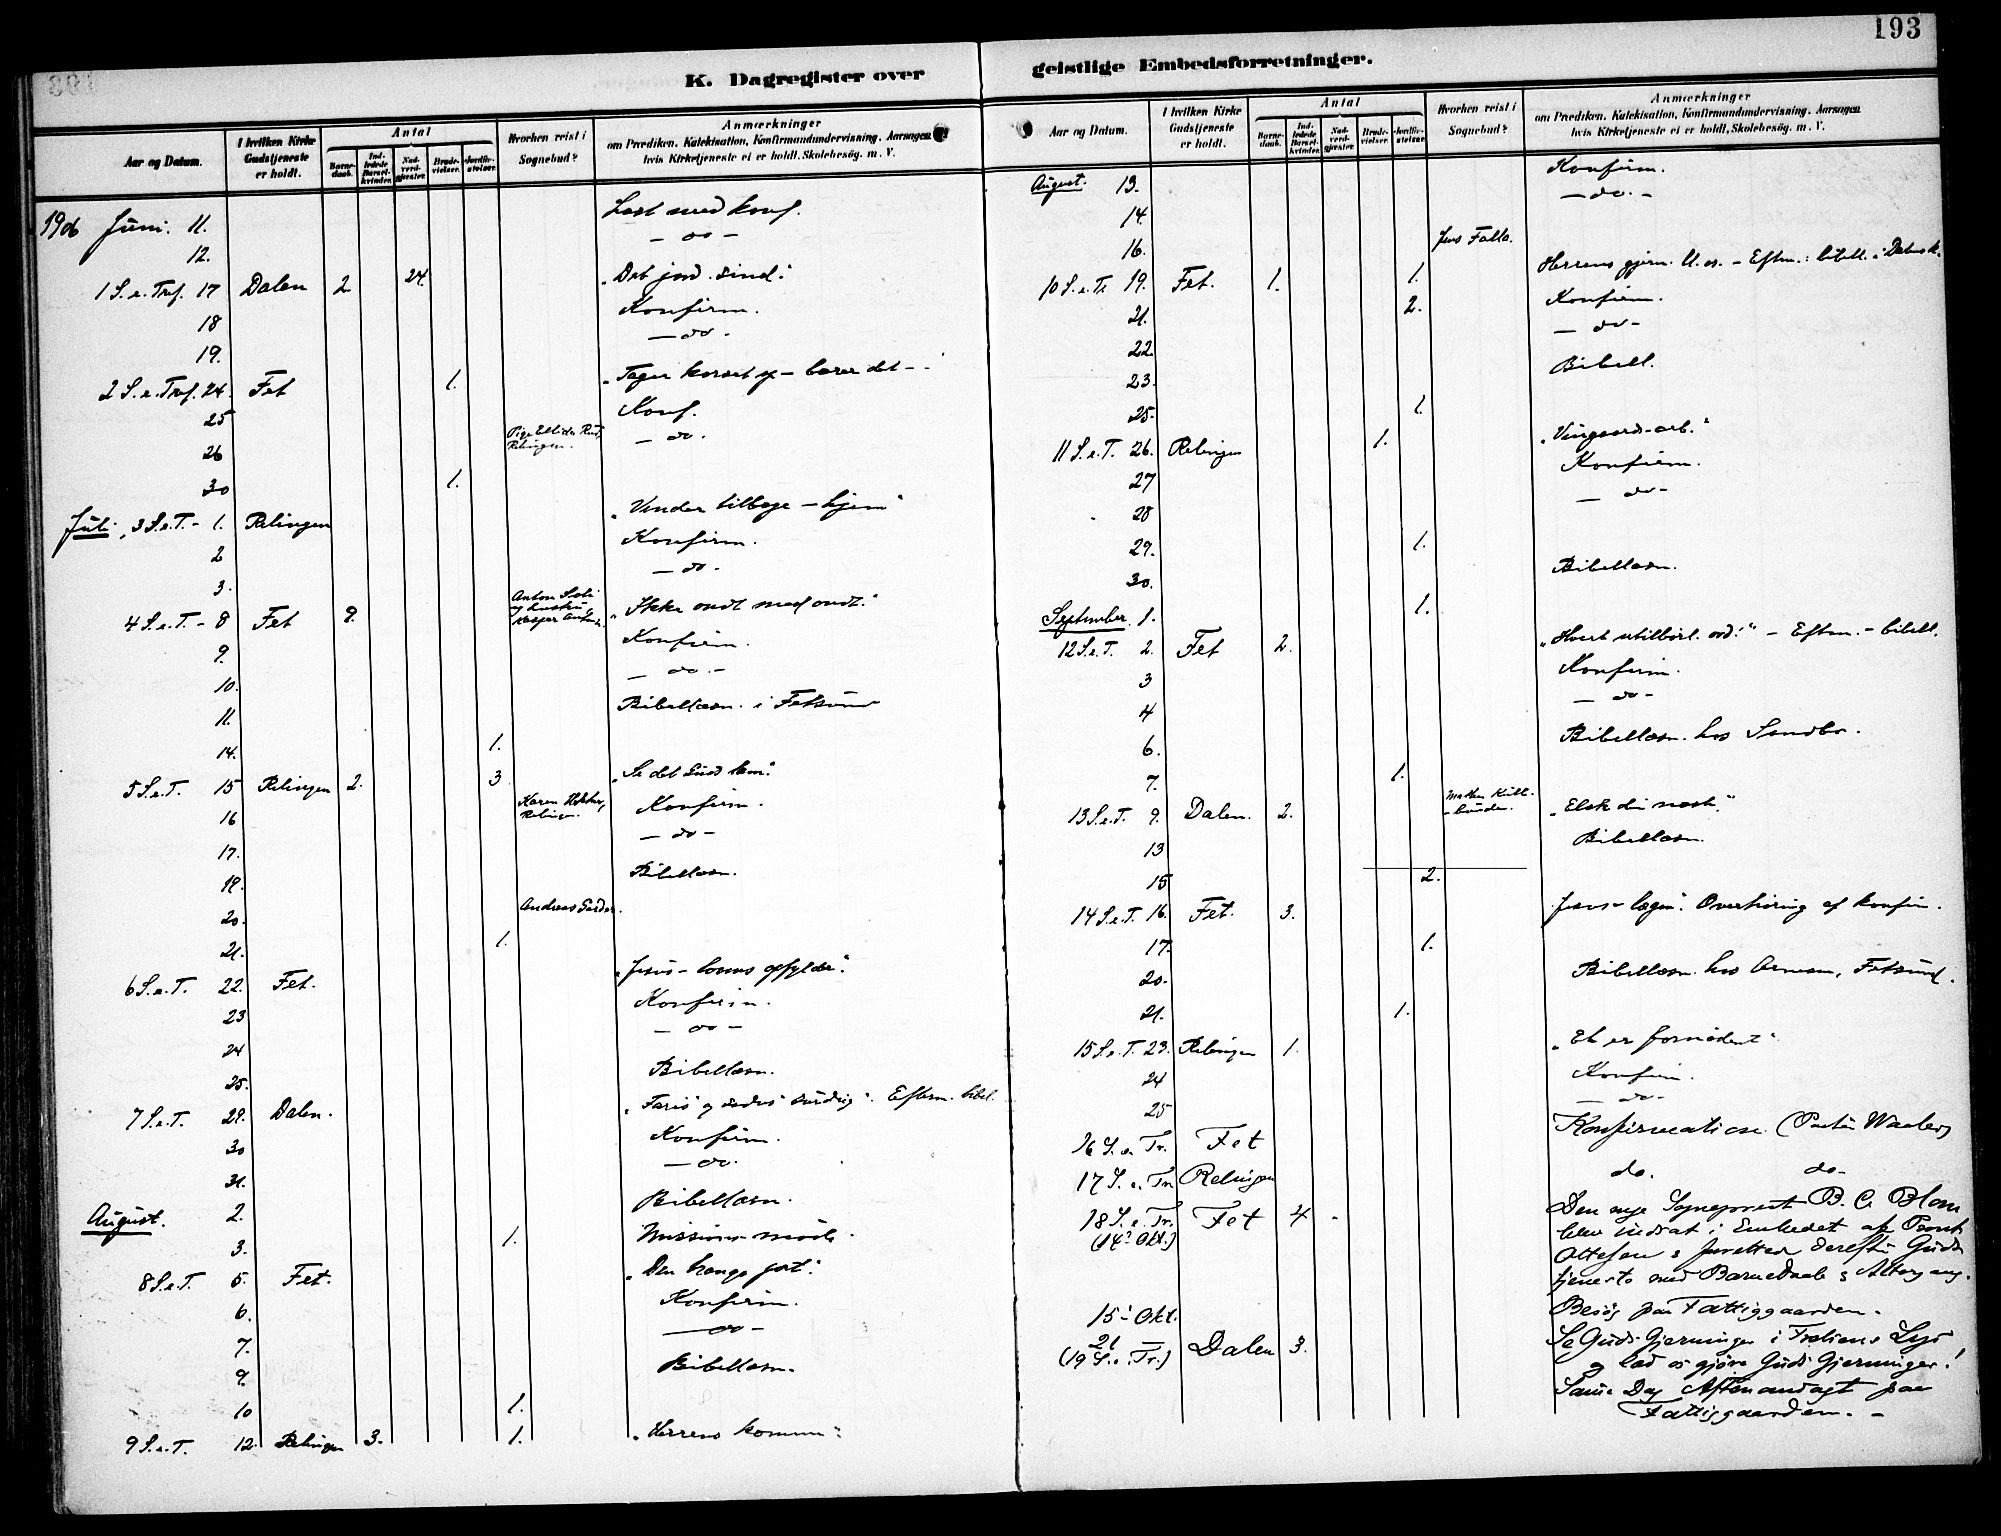 193
K. Dagregister over
geistlige Embedsforretninger.
Aar og Datum.
I hvilken Kirke Gudstjeneste er holdt.
Antal
Barne-daab.
Ind-ledede Barsel-kvinder.
Nad-verd-gjæster.
Brude-vielser.
Jordfæ-stelser.
Hvorhen reist i Sognebud?
Anmærkninger
om Prædiken, Katekisation, Konfirmandundervisning, Aarsagen
hvis Kirketjeneste ei er holdt, Skolebesøg, m. V.
1906 Juni. 11. Læst med konf.
12. – do –
1 S. e. Tref. 17 Dalen 2 24. "Det jord. sind."
18 Konfirm.
19. – do –
2 S. e. Tref. 24. Fet 1. "Tager korset op – bærer det – "
25 Konf.
26 Relingen. – do.
30 1.
Juli 3 S.e.T. – 1. Relingen "Vender tilbage – hjem"
2 Konfirm.
3. – do –
4 S.e.T. – 8 Fet 9. Anton "Ikke ondt med ondt."
9. Konfirm.
10. – do. –
11. Bibellæsn. i Fetsund
14. 1.
5 S.e.T. 15 Relingen 2. 3 "Se det Guds lam."
16 Karen Konfirm.
17. – do –
19. Bibellæsn.
20. Andreas
21. 1.
6 S.e.T. 22. Fet. "Jesus – lovens opfylder".
23 Konfirm.
24 – do –
25. Bibellæsn.
7 S.e.T. 29. Dalen. Efterm. bibel.
30 Konfirm.
31. – do.
August. 2. Bibellæsn.
3. 1. Missions møde.
8 S.e.T. 5. Fet. "Den trange port."
6. Konfirm.
7. – do –
9. Bibellæsn.
10 1.
9 S.e.T. 12. Relingen 3. 1. "Herrens komme"
Aar og Datum.
I hvilken Kirke Gudstjeneste er holdt.
Antal
Barne-daab.
Ind-ledede Barsel-kvinder.
Nad-verd-gjæster.
Brude-vielser.
Jordfæ-stelser.
Hvorhen reist i Sognebud?
Anmærkninger
om Prædiken, Katekisation, Konfirmandundervisning, Aarsagen
hvis Kirketjeneste ei er holdt, Skolebesøg, m. V.
August. 13. Konfirm.
14. – do. –
16. Jens Falla.
10 S.e.Tr. 19. Fet. 1. 1. Herrens gjern. – Eftm.: bibell. i
21. 2. Konfirm.
22. – do –
23. Bibell.
25. 1.
11 S.e.T. 26. Relingen 1. "Vingaards-arb."
27 Konfirm.
28 – do –
29. 1.
30. Bibellæsn.
September. 1. 1.
12 S.e.T. 2. Fet 2. "Hvert utilbørl. ord." – Eftm. – bibell.
3 Konfirm.
4 – do –
6. Bibellæsn. hos Sandbo.
7. 1.
13 S.e.T. 9. Dalen. 2. "Elsk din næste."
13 Bibellæsn.
15 2.
14 S.e.T. 16. Fet. 3. Jesus – lægen". Overhøring af konfirm.
17. 1.
20. Bibellæsn. hos Arnesen, Fetsund.
21. 1.
15 S.e.T. 23. Relingen 1. "Et er fornødent"
24 Konfirm.
25 – do –
16 S. e. Tr. Fet Konfirmation. (Pastor Waaler)
17 S. e. Tr. Relingen do. do –
18 S. e. Tr. Fet 4 Den nye Sogneprest B. C. Blom
(14' Okt.) blev indsat i Embedet af Provst
Ottesen & forrettede derefter Guds-
tjeneste med Barnedaab & Altergang.
15' Okt. Besøg paa Fattiggaarden.
21 (19 S. e. Tr.) Dalen 3. Se Guds Gjerninger i Troens Lys
og lad os gjøre Guds Gjerninger!
Samme Dag Aftenandagt paa
Fattiggaarden. –